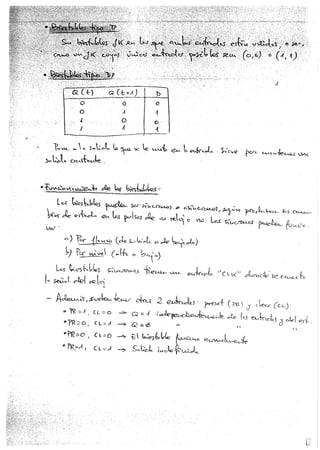 • Biestables tipo D
Son biestables JK en los que ambas entradas están unidas, o sea,
como un JK cuyas únicas entradas posibles sean (0,0) o (1,1)
• Biestables tipo D
Q(t) Q(t+1) D
0 0 0
0 1 1
1 0 0
1 1 1
Pasa a la salida lo que se le mete en la entrada. Sirve para mantener una
salida constante.
• Funcionamiento de los biestables:
Los biestables pueden ser síncronos o asíncronos, según produzcan sus
de entrada en los pulsos de su reloj o no. Los síncronos pueden
ser:
a) Por flanco (de subida o de bajada)
b) Por nivel (alto o bajo)
Los biestables síncronos tienen una entrada "CLK" donde se conecta
la señal del reloj
- Además, suelen tener otras 2 entradas: preset (PR) y clear (CL):
• PR=1, CL=0 → Q=1 independientemente de las entradas y del est.
• PR=0, CL=1 → Q=0 " "
• PR=0, CL=0 → El biestable funciona normalmente
• PR=1, CL=1 → Salida indefinida